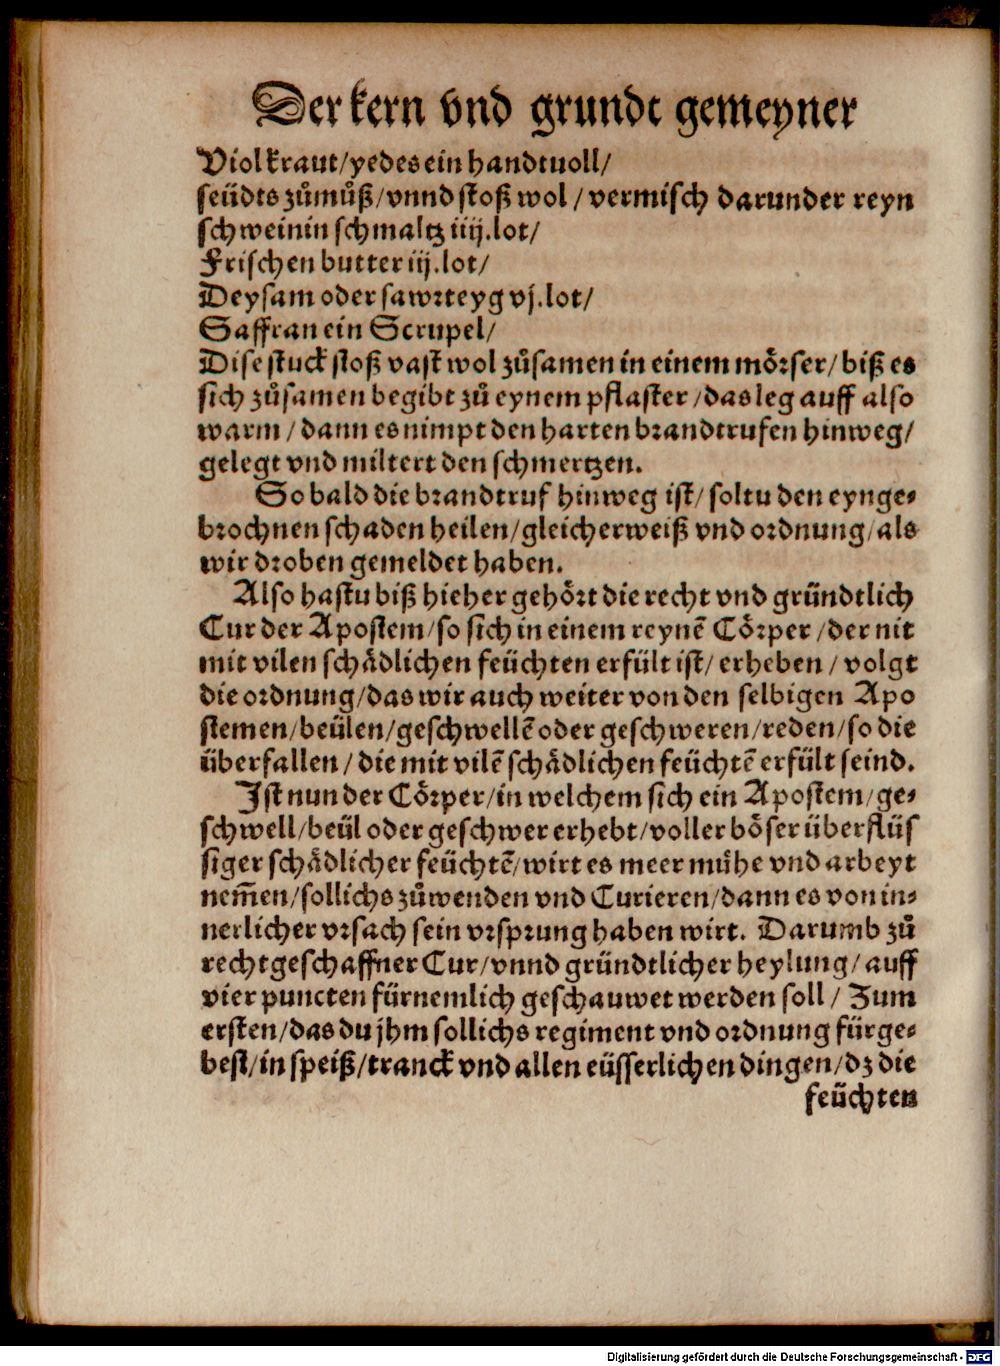 Der kern vnd grundt gemeyner
Violkraut/yedes ein handtuoll/
seüdts zůmůß/vnnd stoß wol/vermisch darunder reyn
schweinin schmaltz iiij.lot/
Frischen butter iij.lot/
Deysam oder sawrteyg vj.lot/
Saffran ein Scrupel/
Dise stuck stoß vast wol zůsamen in einem mörser/biß es
sich zůsamen begibt zů eynem pflaster/das leg auff also
warm/dann es nimpt den harten brandtrufen hinweg/
gelegt vnd miltert den schmertzen.
So bald die brandtruf hinweg ist/soltu den eynge-
brochnen schaden heilen/gleicherweiß vnd ordnung/als
wir droben gemeldet haben.
Also hastu biß hieher gehört die recht vnd gründtlich
Cur der Apostem/so sich in einem reynē Cörper/der nit
mit vilen schädlichen feüchten erfült ist/erheben/volgt
die ordnung/das wir auch weiter von den selbigen Apo
stemen/beülen/geschwellē oder geschweren/reden/so die
überfallen/die mit vilē schädlichen feüchtē erfült seind.
Ist nun der Cörper/in welchem sich ein Apostem/ge-
schwell/beül oder geschwer erhebt/voller böser überflüs
siger schädlicher feüchtē/wirt es meer mühe vnd arbeyt
nem̄en/sollichs zůwenden vnd Curieren/dann es von in-
nerlicher vrsach sein vrsprung haben wirt. Darumb zů
rechtgeschaffner Cur/vnnd gründtlicher heylung/auff
vier puncten fürnemlich geschauwet werden soll/Zum
ersten/das du jhm sollichs regiment vnd ordnung fürge-
best/in speiß/tranck vnd allen eüsserlichen dingen/dz die
feüchten
Digitalisierung gefördert durch die Deutsche Forschungsgemeinschaft - DFG